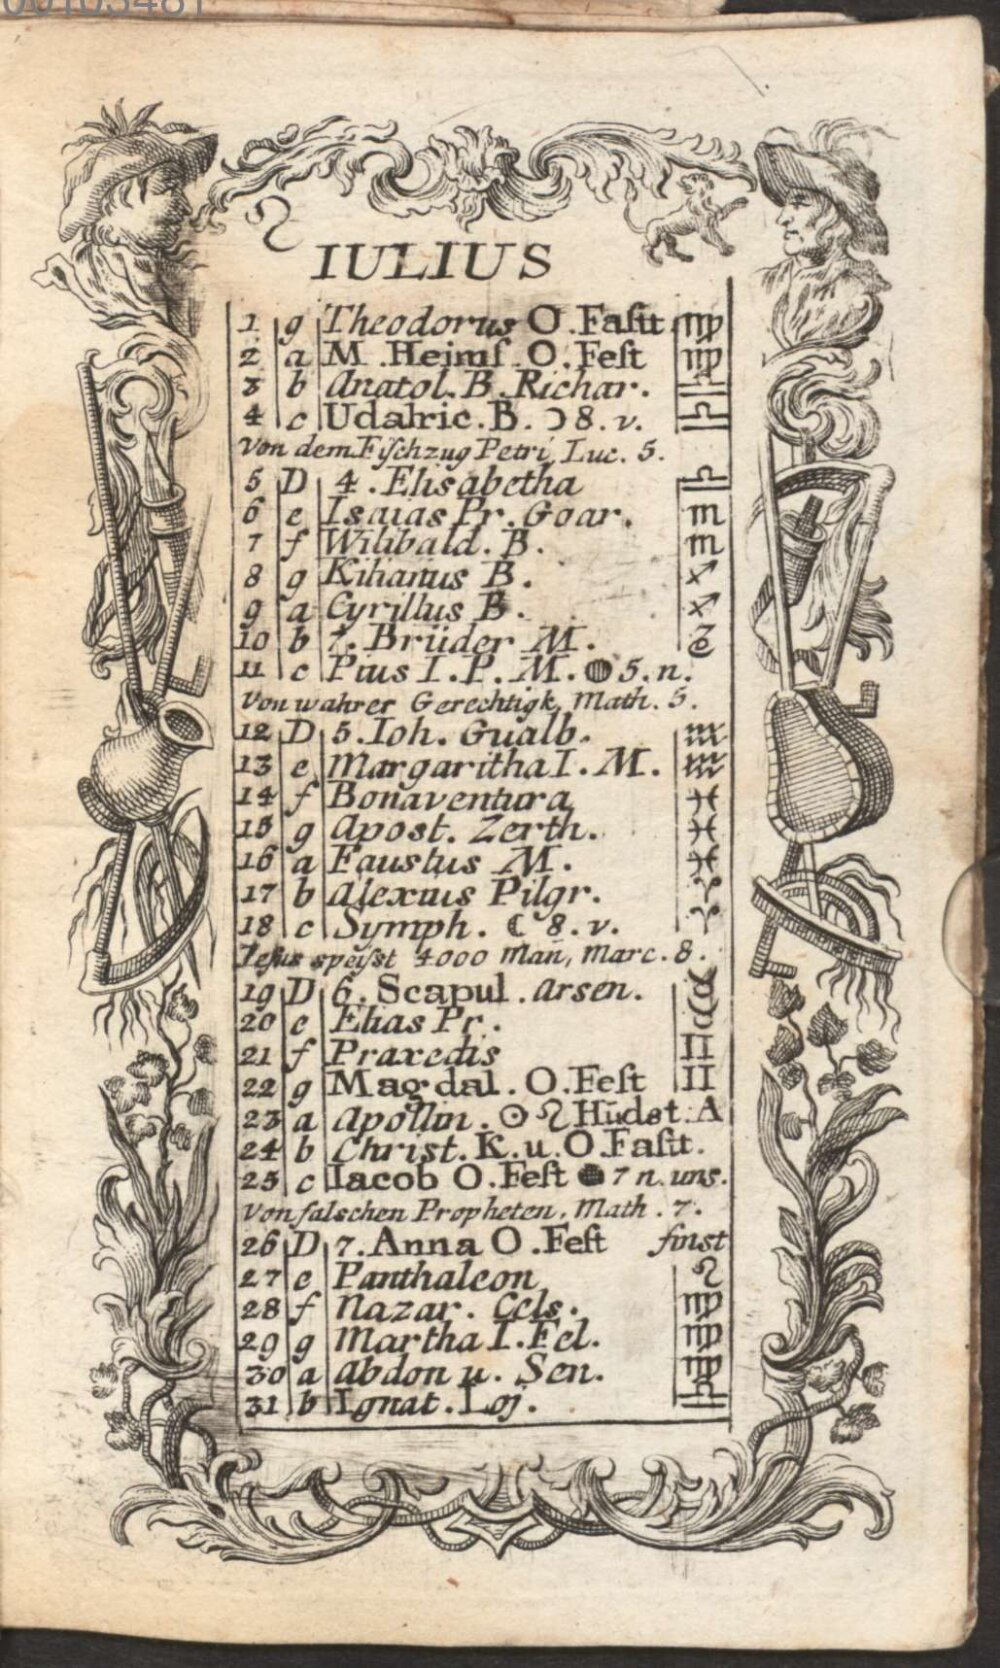 ♌
IULIUS
1 g Theodorus O.Faſtt ♍
2 a M. Heimſ. O. Feſt ♍
3 b Anatol. B. Richar. ♎
4 c Udalric. B. ☽ 8. v. ♎
Von dem Fiſchzug Petri, Luc. 5.
5 D 4. Elisabetha ♎
6 e Isaias Pr. Goar. ♏
7 f Wilibald. B. ♏
8 g Kilianus B. ♐
9 a Cyrillus B. ♐
10 b 7. Brüder M. ♑
11 c Pius I. P. M. 5. n.
Von wahrer Gerechtigk, Math. 5.
12 D 5. Ioh. Gualb. ♒
13 e Margaritha I. M. ♒
14 f Bonaventura ♓
15 g Apost. Zerth. ♓
16 a Faustus M. ♓
17 b Alexius Pilgr. ♈
18 c Symph. ☾ 8. v. ♈
Jeſus speiſst 4000 Mañ, Marc. 8.
19 D 6. Scapul. Arsen. ♉
20 e Elias Pr. ♉
21 f Praxedis ♊
22 g Magdal. O. Feſt ♊
23 a Apollin. ☉ ♌ Hūdst. A
24 b Christ. K. u. O Faſtt.
25 c Iacob O. Feſt ● 7 n. uns.
Von falschen Propheten, Math. 7.
26 D 7. Anna O. Feſt finst
27 e Panthaleon ♌
28 f Nazar. Cels. ♍
29 g Martha I. Fel. ♍
30 a Abdon u. Sen. ♍
31 b Ignat. Loj. ♎